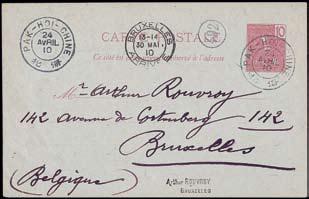 PAK-HOI-CHINE
24
AVRIL
10
BRUXELLES
13-14
30 MAI
10
ARRIVÉE
CARTE POSTALE
10
Ce côté est exclusivement réservé à l'adresse
PAK-HOI-CHINE
10
Mr Arthur Rouvroy
142 Avenue de Cortenberg 142
Bruxelles
(Belgique)
Arthur ROUVROY
BRUXELLES